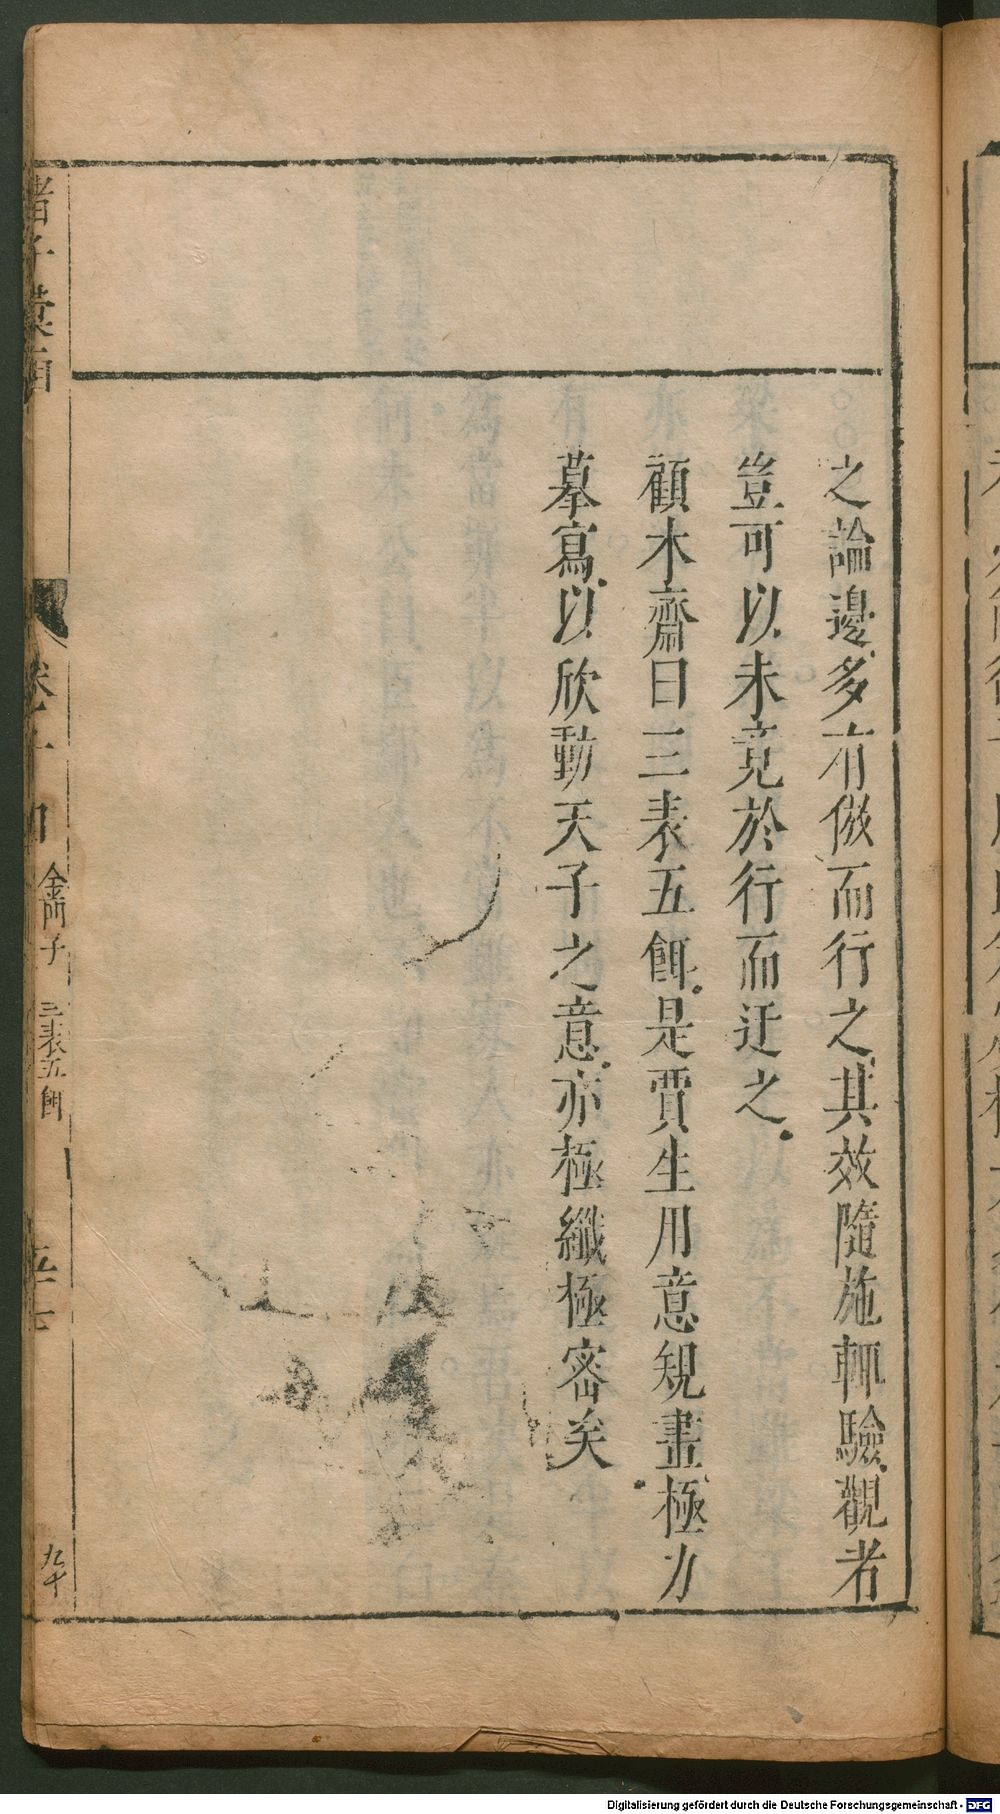 之論邊多有倣而行之其效隨施輒驗觀者
豈可以未竟於行而迂之
顧木齋曰三表五餌是賈生用意規畫極力
摹寫以欣動天子之意亦極纖極密矣
諸子彙函
金門子
三表五餌
九十
Digitalisierung gefördert durch die Deutsche Forschungsgemeinschaft - DFG